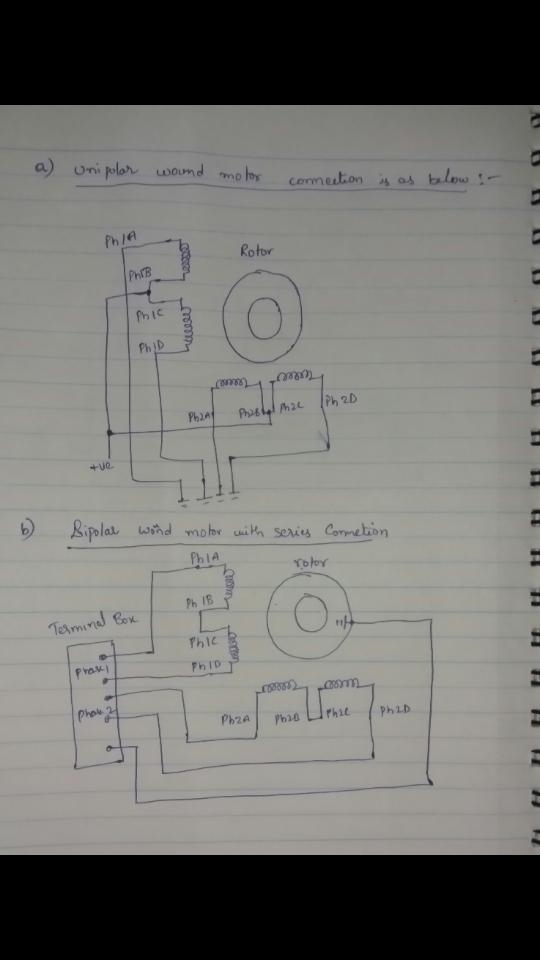 a) Unipolar wound motor connection is as below :-
Ph1A
Rotor
Ph1B
Ph1C
Ph1D
Ph2A
Ph2B
Ph2C
Ph2D
+ve
b) Bipolar wound motor with series Connetion
Ph1A
rotor
Ph1B
Terminal Box
Ph1C
Phase1
Ph1D
Phase2
Ph2A
Ph2B
Ph2C
Ph2D